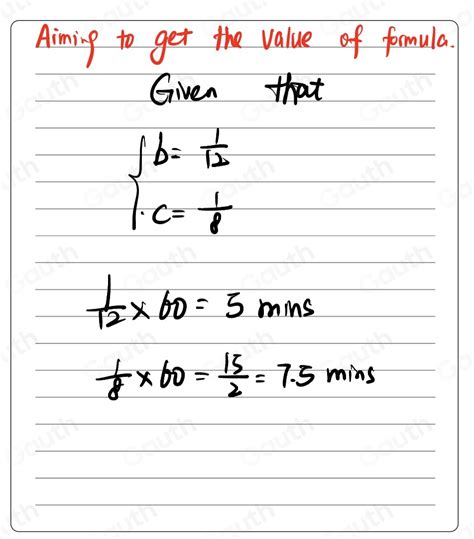 Aiming to get the value of formula.
Given that
b = 1/12
c = 1/8
1/12 × 60 = 5 mins
1/8 × 60 = 15/2 = 7.5 mins